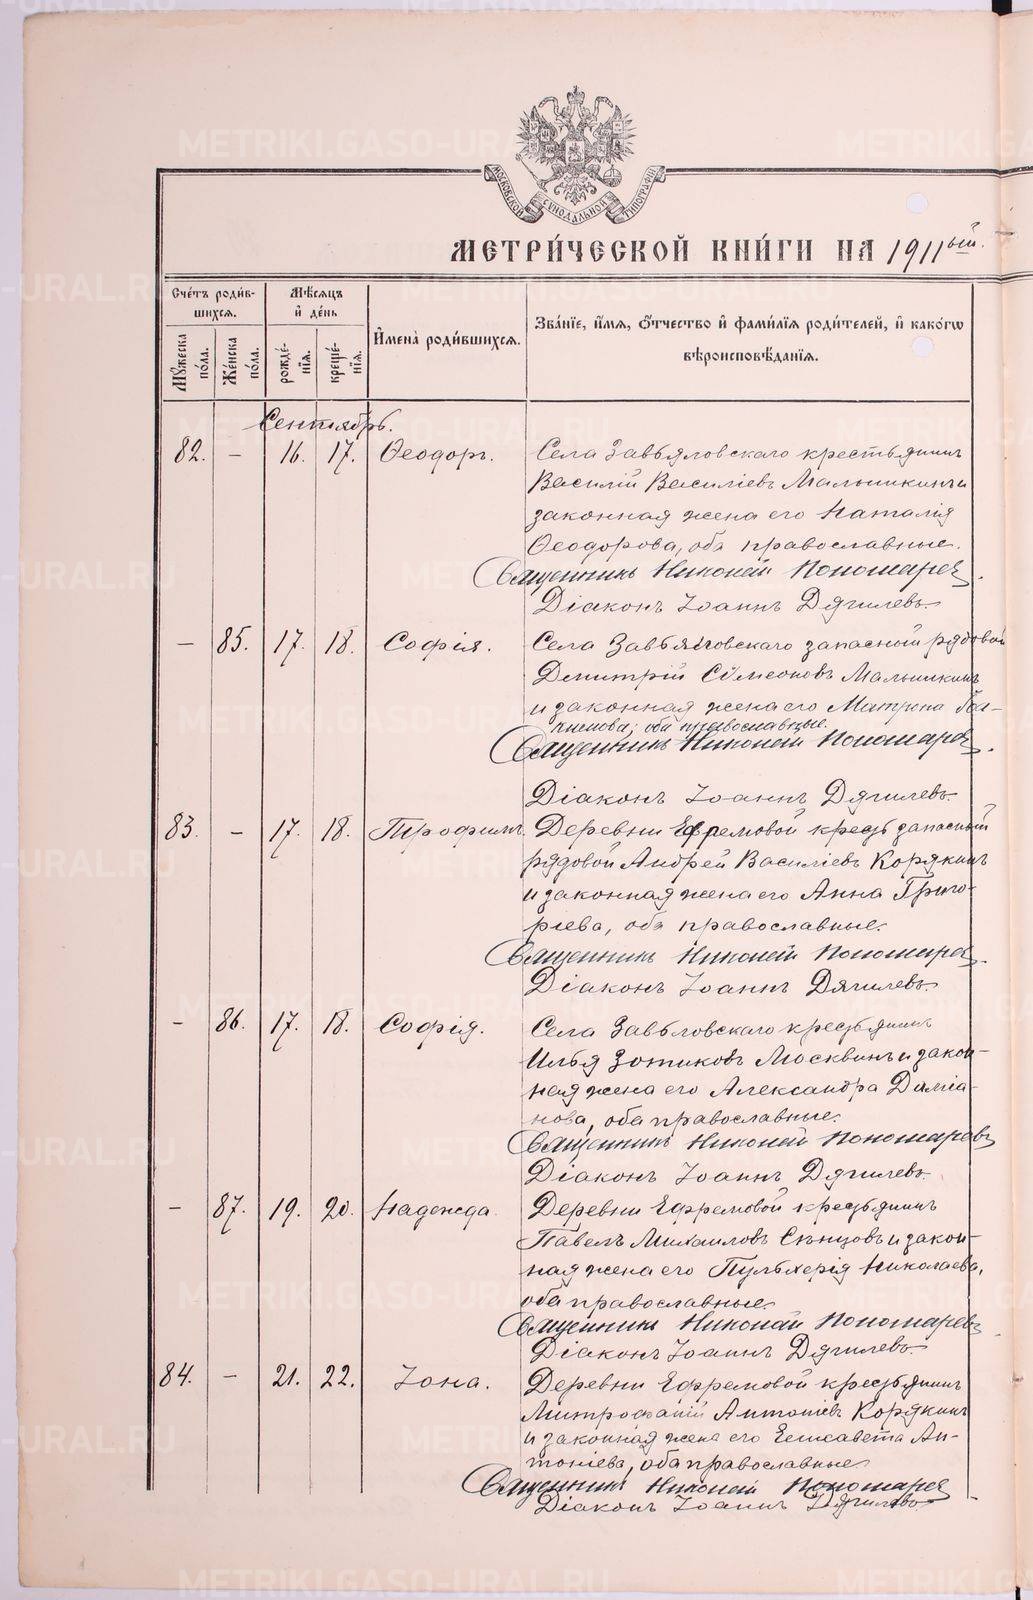 МОСКОВСКОЙ СѴНОДАЛЬНОЙ ТИПОГРАФІИ
МЕТРИ́ЧЕСКОЙ КНИ́ГИ НА 1911ый.
Сче́тъ роди́в-
шихся.
Мѣ́сяцъ
и҆ де́нь
И҆мена̀ роди́вшихся.
Зва́нїе, и҆́мя, ѻ҆́тчество и҆ фами́лїя роди́телей, и҆ како́гѡ
вѣроисповѣ́данїя.
Мꙋ́жеска по́ла.
Же́нска по́ла.
рожде́нїѧ.
креще́нїѧ.
Сентябрь.
82. – 16. 17. Ѳеодоръ. Села Завьяловскаго крестьянинъ
Василій Василіевъ Мальчикинъ и
законная жена его Наталія
Ѳеодорова, оба православные.
Священникъ Никоней Пономарев.
Діаконъ Іоаннъ Дягилевъ
– 85. 17. 18. Софія. Села Завьяловскаго запасный рядовой
Димитрій Сѵмеоновъ Мальчикинъ
и законная жена его Матрона
оба православные.
Священникъ Никоней Пономарев.
Діаконъ Іоаннъ Дягилевъ.
83. – 17. 18. Трофимъ. Деревни Ефремовой крест запасный
рядовой Андрей Василіевъ Корякинъ
и законная жена его Анна Григо-
ріева, оба православные.
Священникъ Никоней Пономарев.
Діаконъ Іоаннъ Дягилевъ.
– 86. 17. 18. Софія. Села Завьловскаго крестьянинъ
Илья Зотиковъ Москвинъ и закон-
ная жена его Александра Даміа-
нова, оба православные.
Священникъ Никоней Пономаревъ
Діаконъ Іоаннъ Дягилевъ.
– 87. 19. 20. Надежда. Деревни Ефремовой крестьянинъ
Павелъ Михаиловъ Сѣнцовъ и закон-
ная жена его Пульхерія Николаева,
оба православные.
Священникъ Никоней Пономаревъ
Діаконъ Іоаннъ Дягилевъ.
84. – 21. 22. Іона. Деревни Ефремовой крестьянинъ
Митрофаній Антоніевъ Корякинъ
и законная жена его Елисавета Ан-
тоніева, оба православные
Священникъ Никоней Пономарев
Діаконъ Іоаннъ Дягилевъ
METRIKI.GASO-URAL.RU